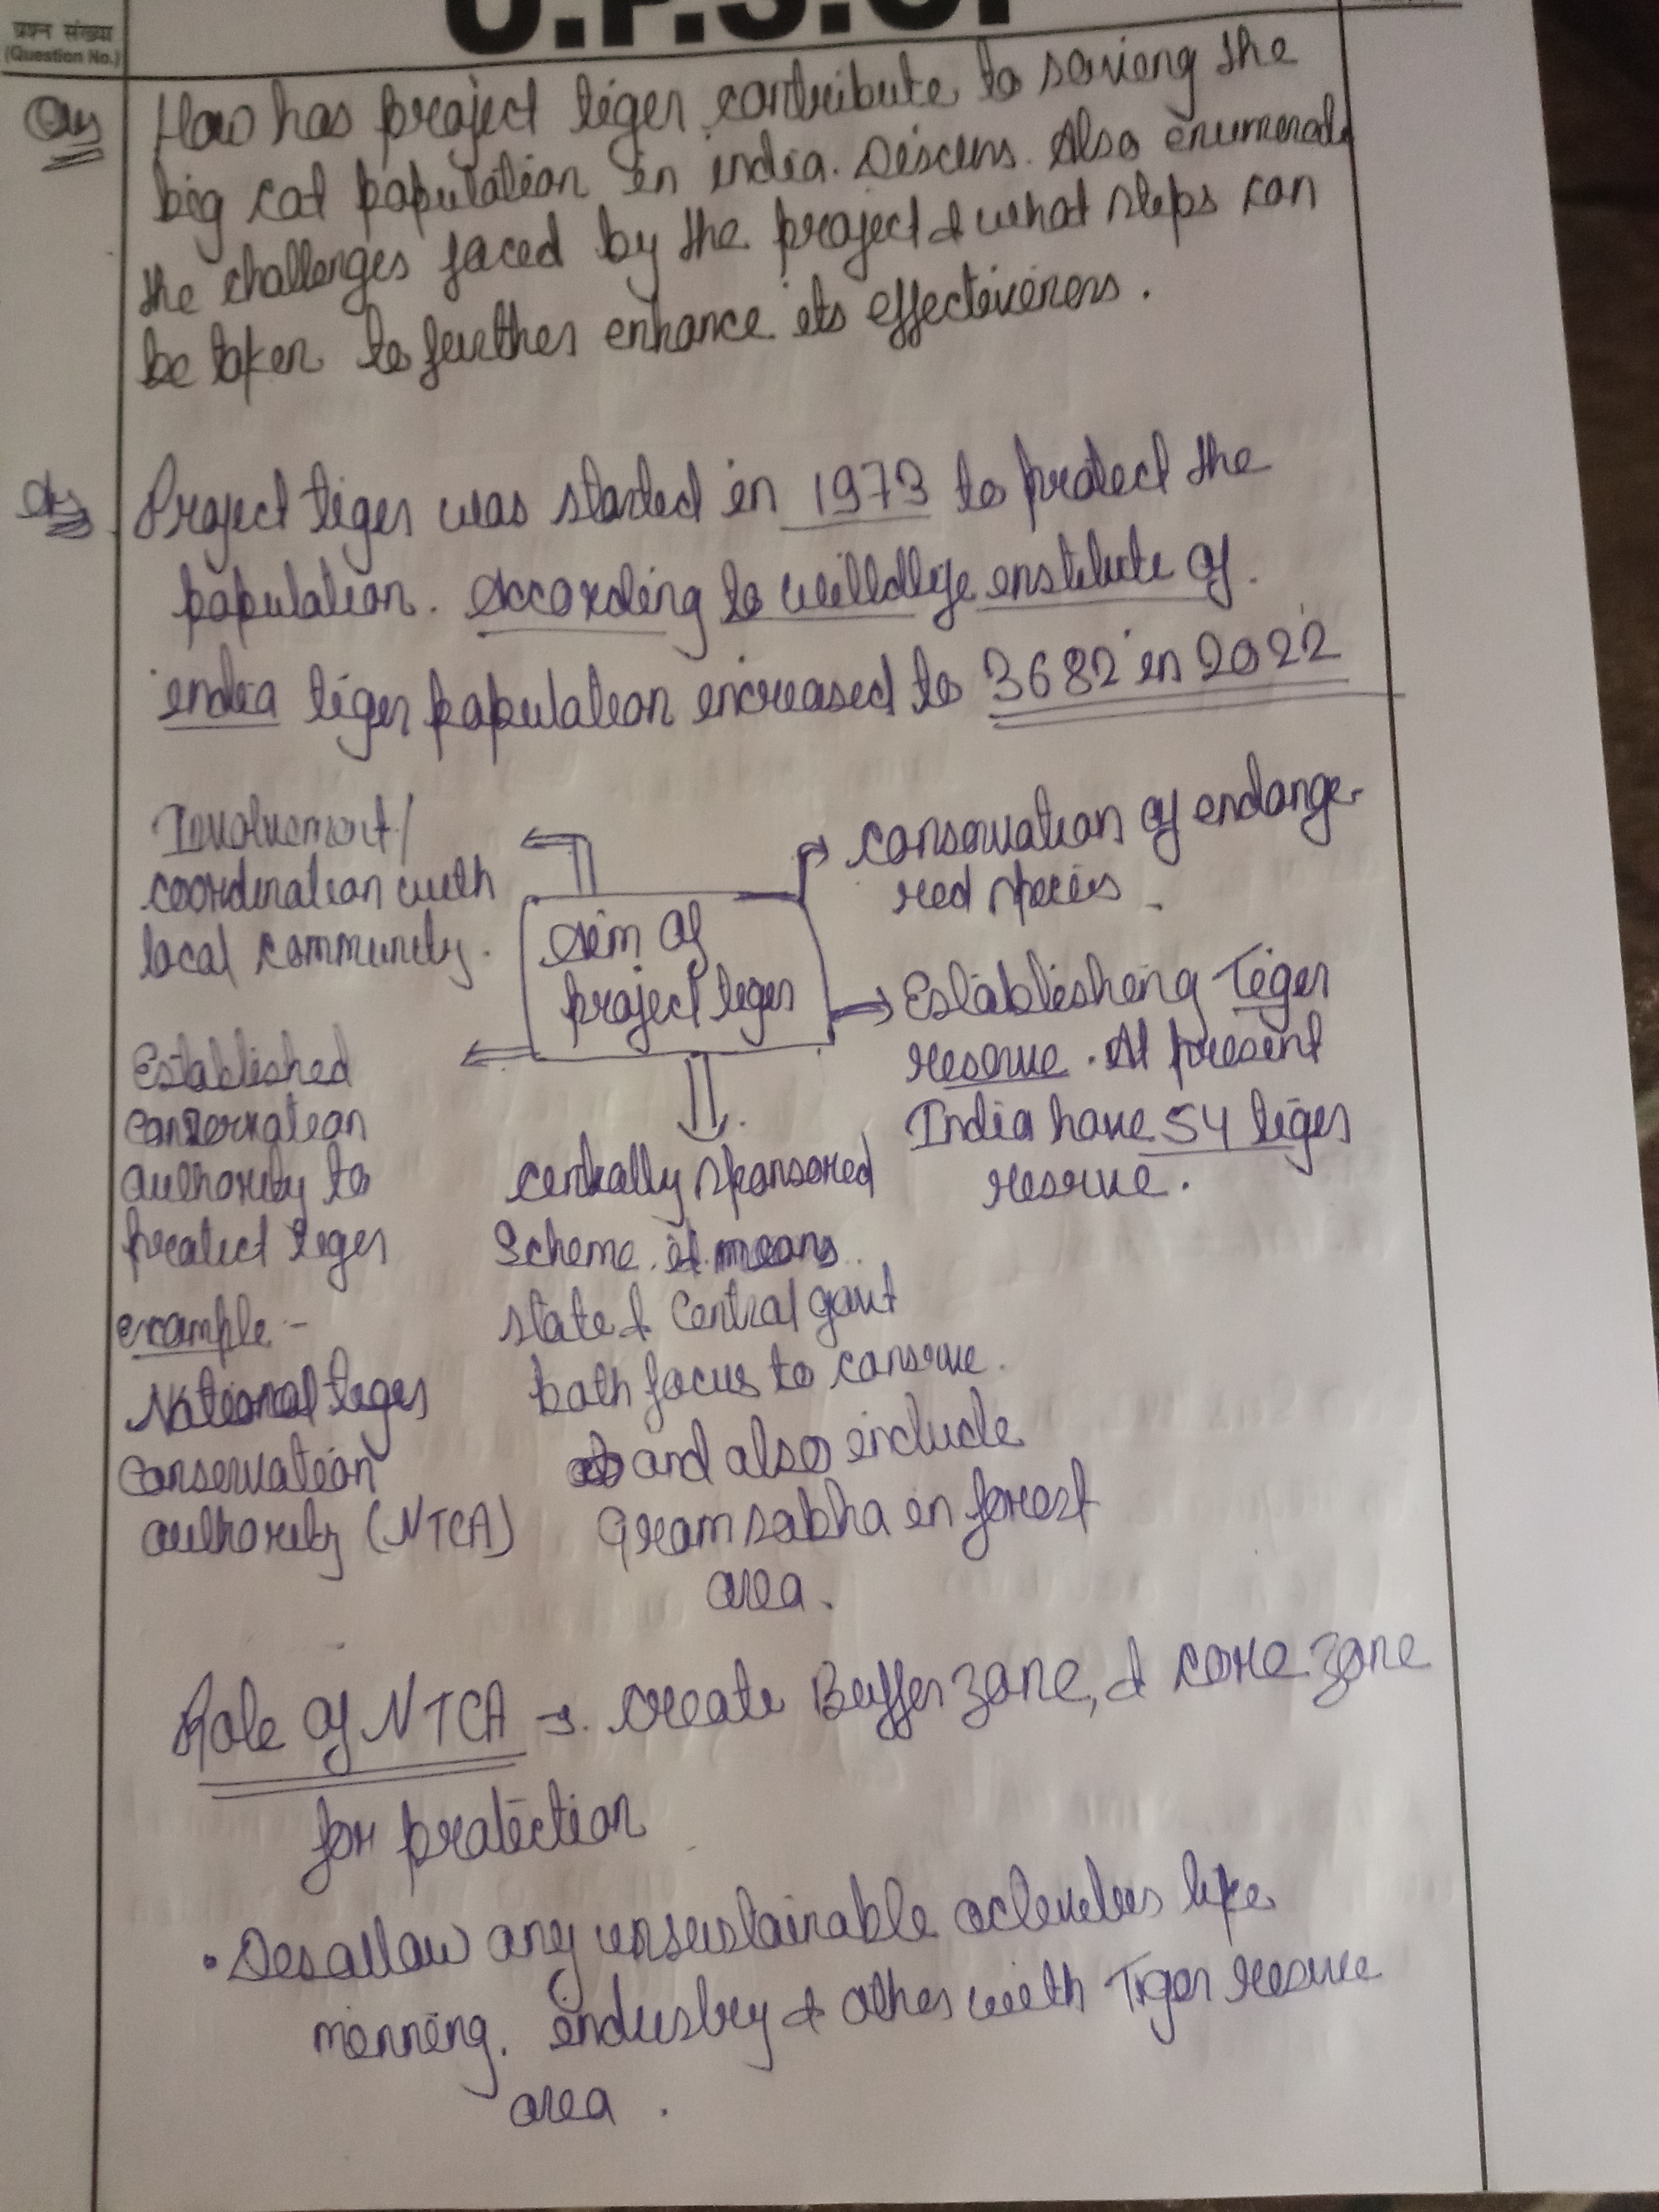 U.P.S.C.
प्रश्न संख्या
(Question No.)
Qus How has project tiger contribute to saving the
big cat population in india. Discuss. Also enumerate
the challenges faced by the project & what steps can
be taken to further enhance its effectiveness.
Ans. Project tiger was started in 1973 to protect the
population. According to willdlife institute of
india tiger population increased to 3682 in 2022
Involvement/
coordination with
local community.
Aim of
project tiger
conservation of endange-
red species.
Establishing Tiger
reserve. At present
India have 54 tiger
reserve.
Established
conservation
authority to
protect tiger
example:-
National tiger
conservation
authority (NTCA)
centrally sponsored
Scheme. it means
state & Central govt
both focus to conserve.
and also include
Gram sabha in forest
area.
Role of NTCA → create Buffer zone, & core zone
for protection
• Disallow any unsustainable activities like
minning. industry & other with Tiger reserve
area.